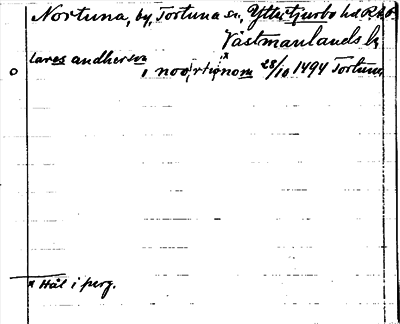 Nortuna, by, Tortuna sn, Yttertjurbo hd R.A.P.
Västmanlands l.
lares andherson
i noo(rtu)nom 28/10 1494 Tortuna
x Hål i perg.